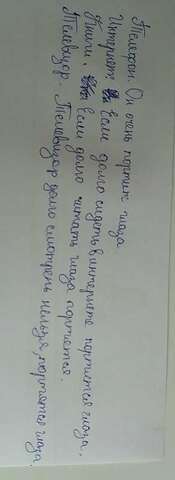 Телефон. Он очень портит глаза
Интернет. Если долго сидеть в интернете портятся глаза,
Книги. Если долго читать глаза портятся.
Телевизор - Телевизор долго смотреть нельзя, портятся глаза